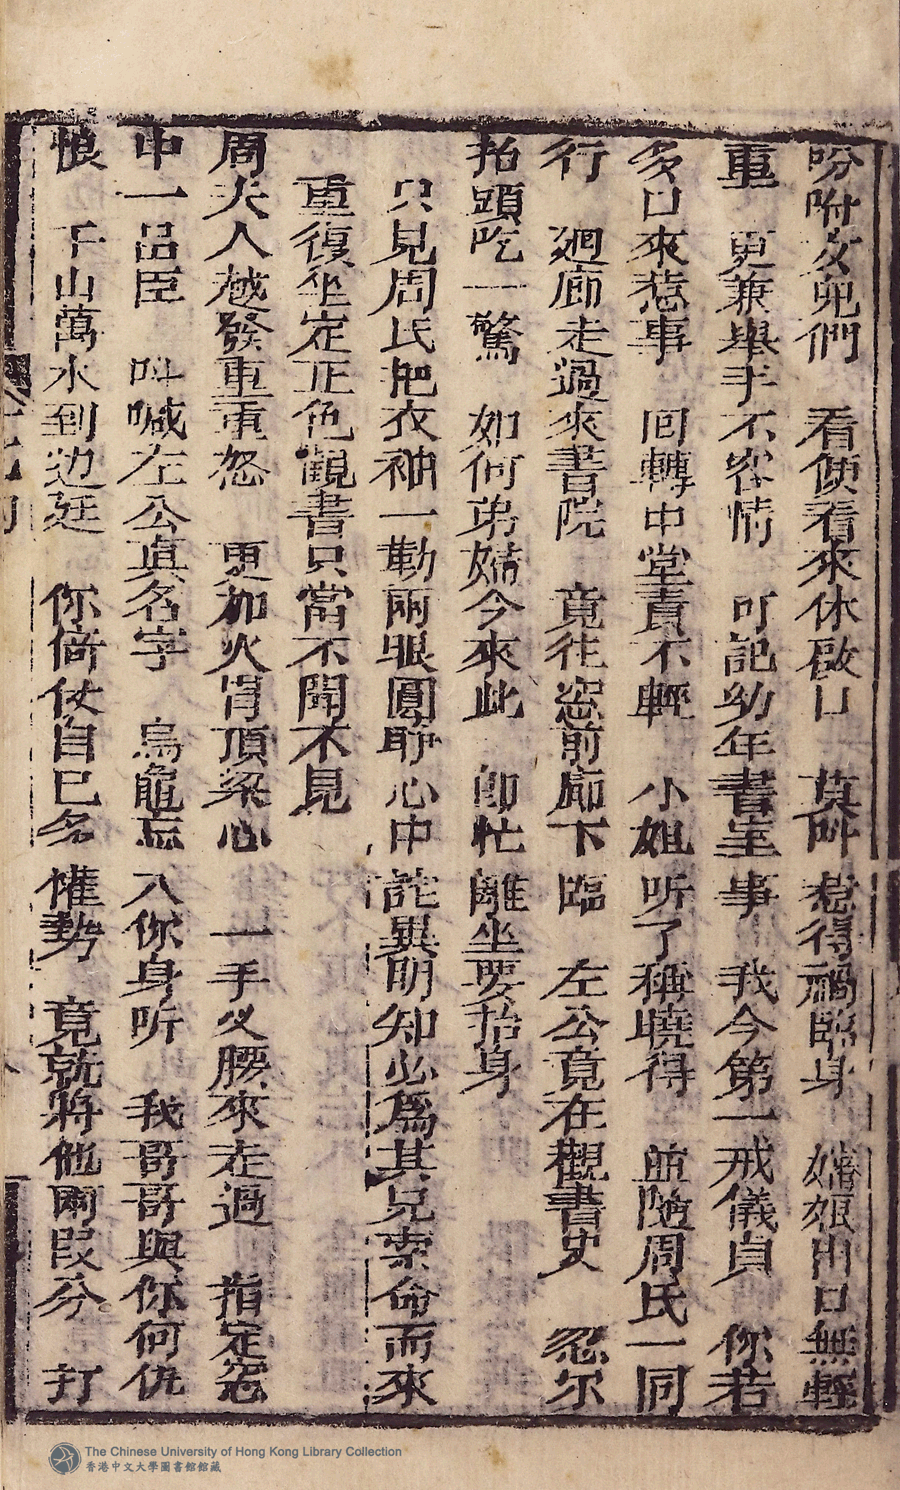 吩咐女児們　看使看來休啟口　莫吽惹得禍臨身　嬸娘出口無輕
重　更兼舉手不容情　可記幼年書室事　我今第一戒儀貞　你若
多口來惹事　囘轉中堂責不輕　小姐听了稱曉得　啣隨周氏一同
行　廻廊走過來書院　竟往窓前廊下臨　左公竟在觀書史　忽尔
抬頭吃一驚　如何弟媳今來此　卽忙離坐要抬身
只見周氏把衣袖一勒兩眼圓睁心中詫異明知必爲其兄索命而來
重復坐定正色觀書只當不聞不見
周夫人越發重重怒　更加火冐頂梁心　一手义腰來走過　指定窓
中一品臣　呌喊左公真名字　烏龜忘八你身听　我哥哥與你何仇
恨　千山萬水到边廷　你倚仗自巳名𫞂勢　竟就將他兩叚分　打
The Chinese University of Hong Kong Library Collection
香港中文大學圖書館館藏